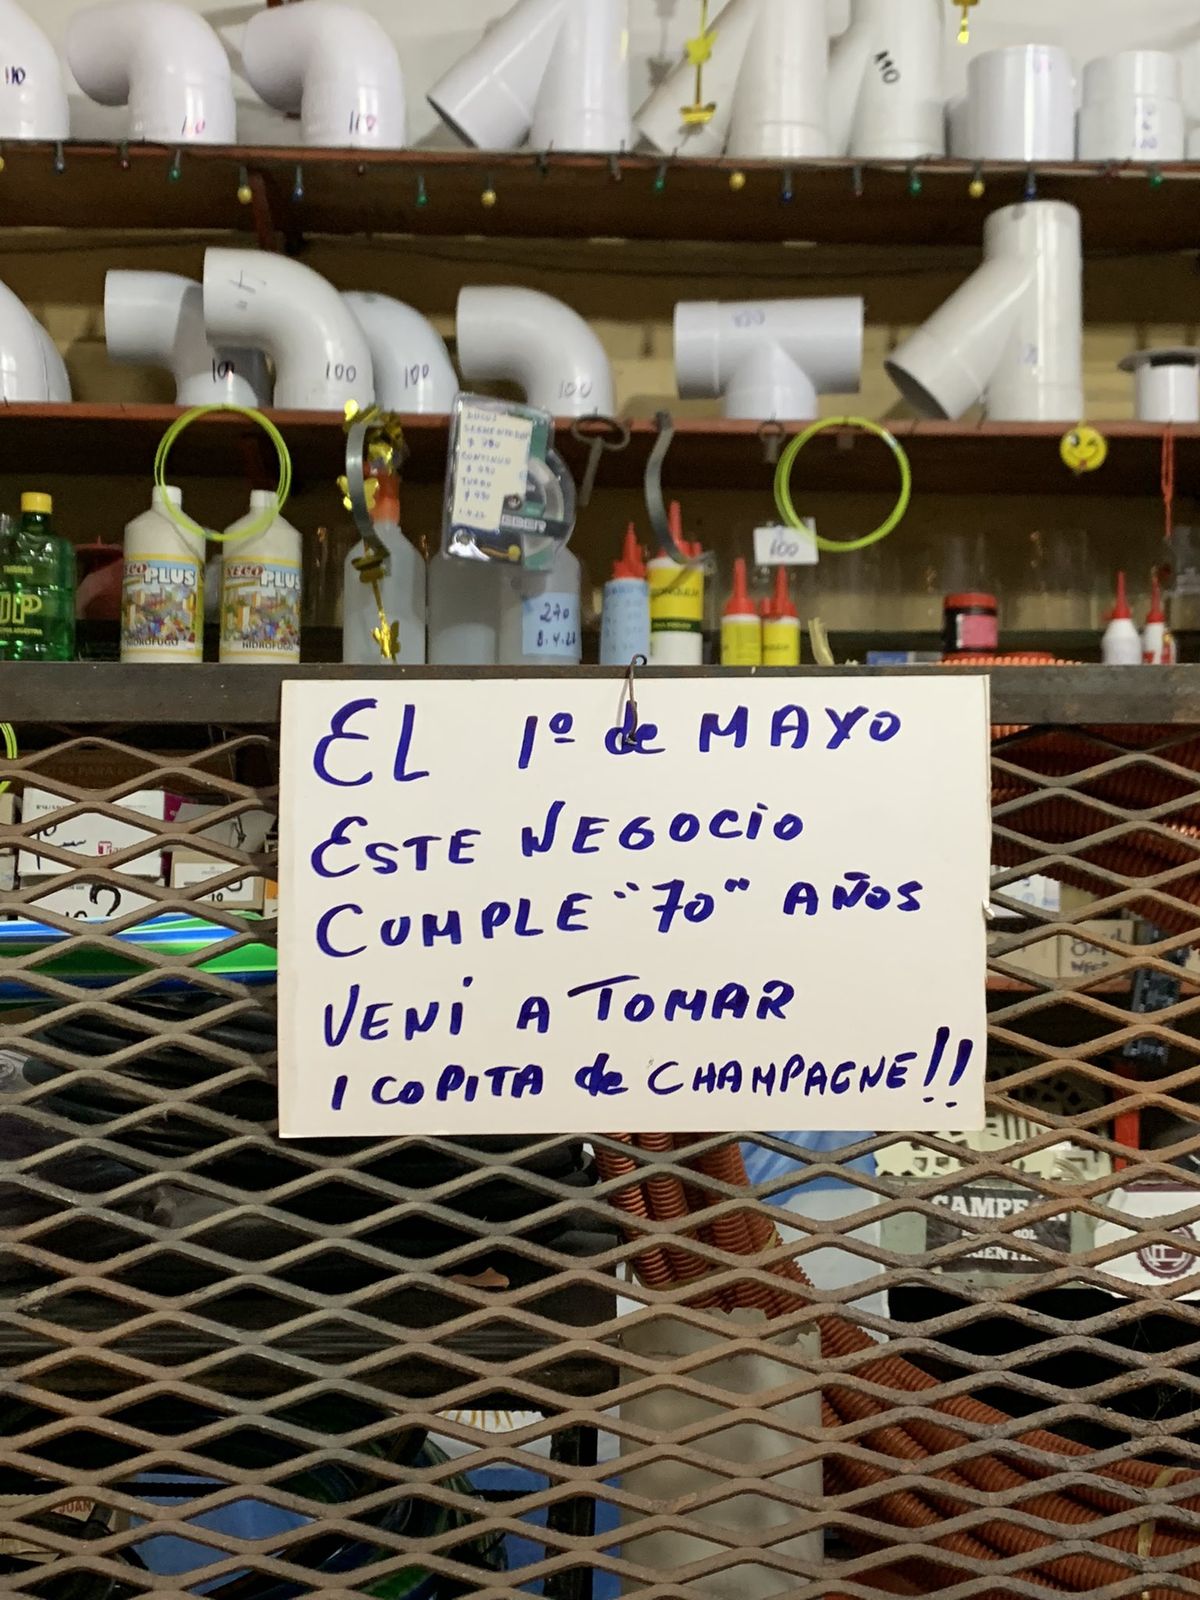 110
110
110
110
100
100
100
100
ECO PLUS
HIDROFUGO
SECO PLUS
HIDROFUGO
SEGMENTADO
CONTINUO
TURBO
270
8.4.22
100
EL 1º de MAYO
ESTE NEGOCIO
CUMPLE "70" AÑOS
VENI A TOMAR
1 COPITA de CHAMPAGNE!!
CAMPEÓN